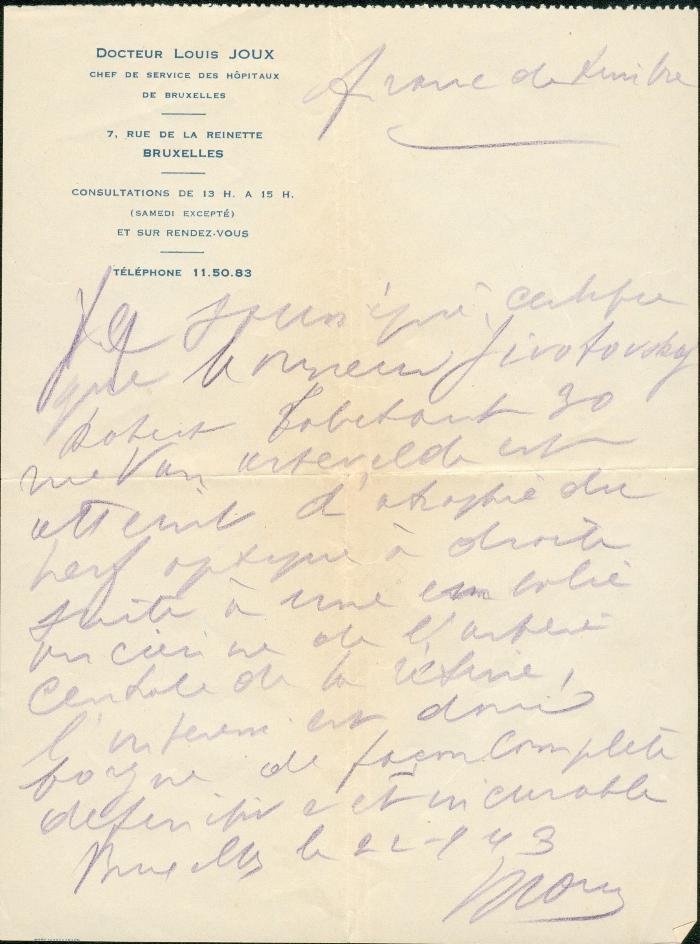 DOCTEUR LOUIS JOUX
CHEF DE SERVICE DES HÔPITAUX
DE BRUXELLES
7, RUE DE LA REINETTE
BRUXELLES
CONSULTATIONS DE 13 H. A 15 H.
(SAMEDI EXCEPTÉ)
ET SUR RENDEZ-VOUS
TÉLÉPHONE 11.50.83
franc de timbre
Je soussigné certifie
que Monsieur Jivotovsky
Robert habitant 30
rue Van artevelde est
atteint d'atrophie du
nerf optique à droite
suite à une embolie
ancienne de l'artère
centrale de la rétine,
l'intéressé est donc
borgne de façon complète
définitive et incurable
Bruxelles le 22-1 43